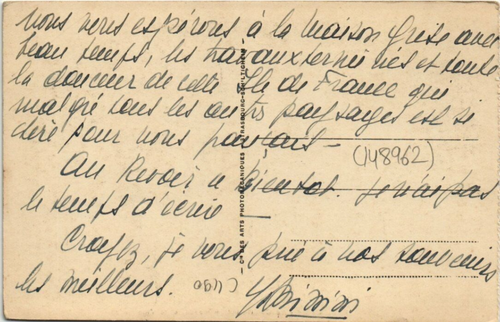 nous vous espérons à la maison grise avec
beau temps, les travaux terminés et toute
la douceur de cette Ile de France qui
malgré tous les autres paysages est si
chère pour nous
(148962)
Au Revoir à Bientot. je n'ai pas
le temps d'écrire
Croyez, je vous prie à nos souvenirs
les meilleurs.
Cie DES ARTS PHOTOMÉCANIQUES STRASBOURG-SCHILTIGHEIM